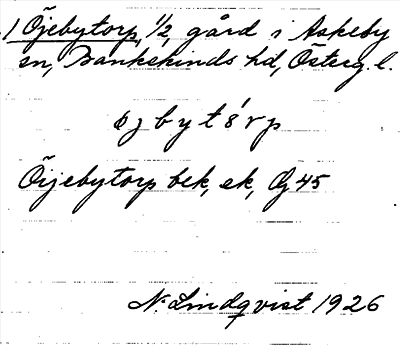 1 Öjebytorp, 1/2, gård i Askeby
sn, Bankekinds hd, Österg. l.
öjbytórp
Öijebytorp bek, ek, Öj 45
N. Lindqvist 1926